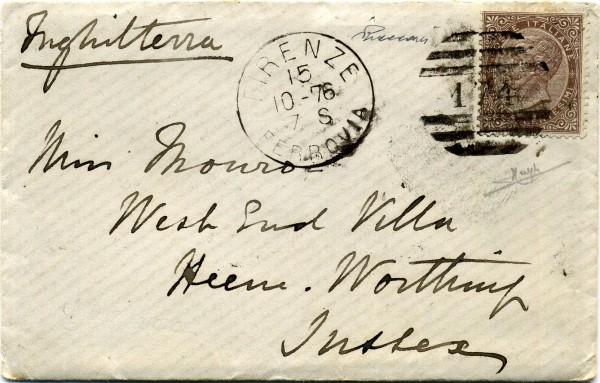 Inghilterra
FIRENZE
15
10-76
7 S
FERROVIA
174
ITALIANE
Miss Monro
West End Villa
Heene. Worthing
Sussex